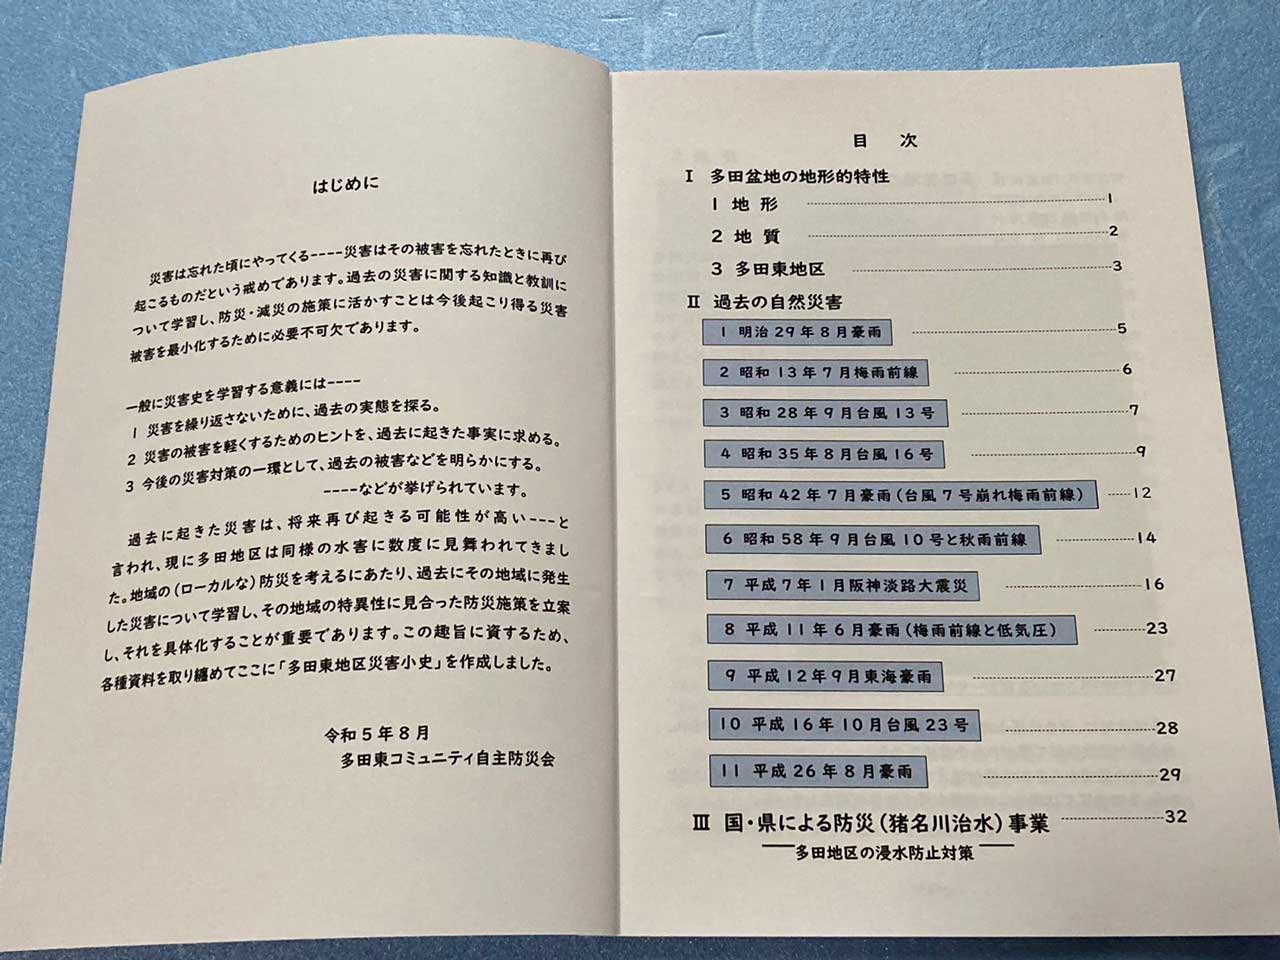 はじめに
災害は忘れた頃にやってくる----災害はその被害を忘れたときに再び
起こるものだという戒めであります。過去の災害に関する知識と教訓に
ついて学習し、防災・減災の施策に活かすことは今後起こり得る災害
被害を最小化するために必要不可欠であります。
一般に災害史を学習する意義には----
1 災害を繰り返さないために、過去の実態を探る。
2 災害の被害を軽くするためのヒントを、過去に起きた事実に求める。
3 今後の災害対策の一環として、過去の被害などを明らかにする。
----などが挙げられています。
過去に起きた災害は、将来再び起きる可能性が高い---と
言われ、現に多田地区は同様の水害に数度に見舞われてきまし
た。地域の(ローカルな)防災を考えるにあたり、過去にその地域に発生
した災害について学習し、その地域の特異性に見合った防災施策を立案
し、それを具体化することが重要であります。この趣旨に資するため、
各種資料を取り纏めてここに「多田東地区災害小史」を作成しました。
令和5年8月
多田東コミュニティ自主防災会
目 次
Ⅰ 多田盆地の地形的特性
1 地 形 1
2 地 質 2
3 多田東地区 3
Ⅱ 過去の自然災害
1 明治29年8月豪雨 5
2 昭和13年7月梅雨前線 6
3 昭和28年9月台風13号 7
4 昭和35年8月台風16号 9
5 昭和42年7月豪雨(台風7号崩れ梅雨前線) 12
6 昭和58年9月台風10号と秋雨前線 14
7 平成7年1月阪神淡路大震災 16
8 平成11年6月豪雨(梅雨前線と低気圧) 23
9 平成12年9月東海豪雨 27
10 平成16年10月台風23号 28
11 平成26年8月豪雨 29
Ⅲ 国・県による防災(猪名川治水)事業 32
多田地区の浸水防止対策